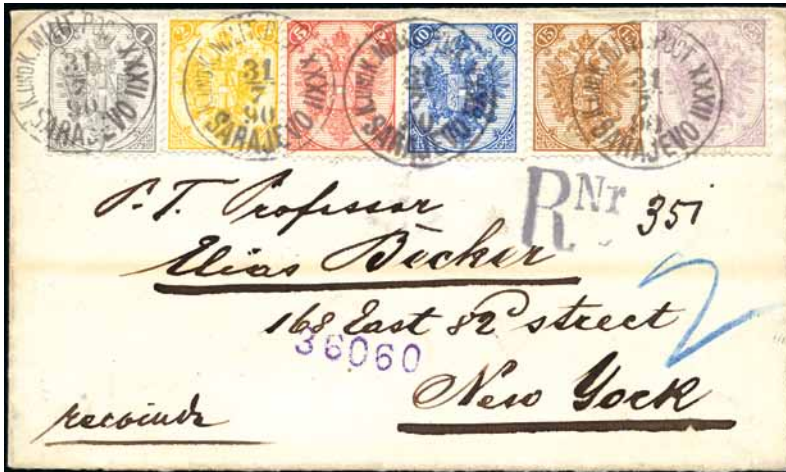 1 2 2 5 5 10 10 15 15 25
K.UND K. MILIT. POST XXXII
31
7
90
SARAJEVO
K.UND K. MILIT. POST XXXII
31
7
90
SARAJEVO
K.UND K. MILIT. POST XXXII
SARAJEVO
K.UND K. MILIT. POST XXXII
31
7
90
SARAJEVO
R Nr 351
P. T. Professor
Elias Becker
168 East 82 street
36060
2
New York